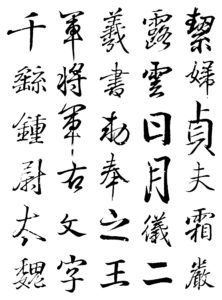 絜婦貞夫霜嚴
露雲日月儀二
羲書勅奉之王
軍將軍古文字
千繇鍾尉太魏